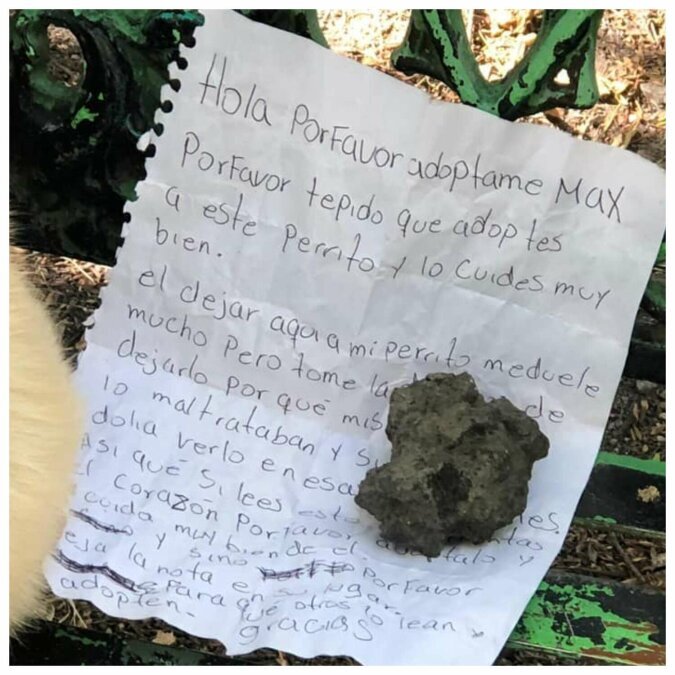 Hola PorFavor adoptame Max
PorFavor tepido que adoptes
a este Perrito y lo cuides muy
bien.
el dejar aqui a mi perrito meduele
mucho Pero tome la de
dejarlo Por qué mis
lo maltrataban y
dolia verlo en esa es.
Así qué Si lees esto ntas
el corazón Porfavor adoptalo y
cuida muy bien de el
y sino PorFavor
la nota en su lugar.
Para que otros lo lean y
adopten.
gracias